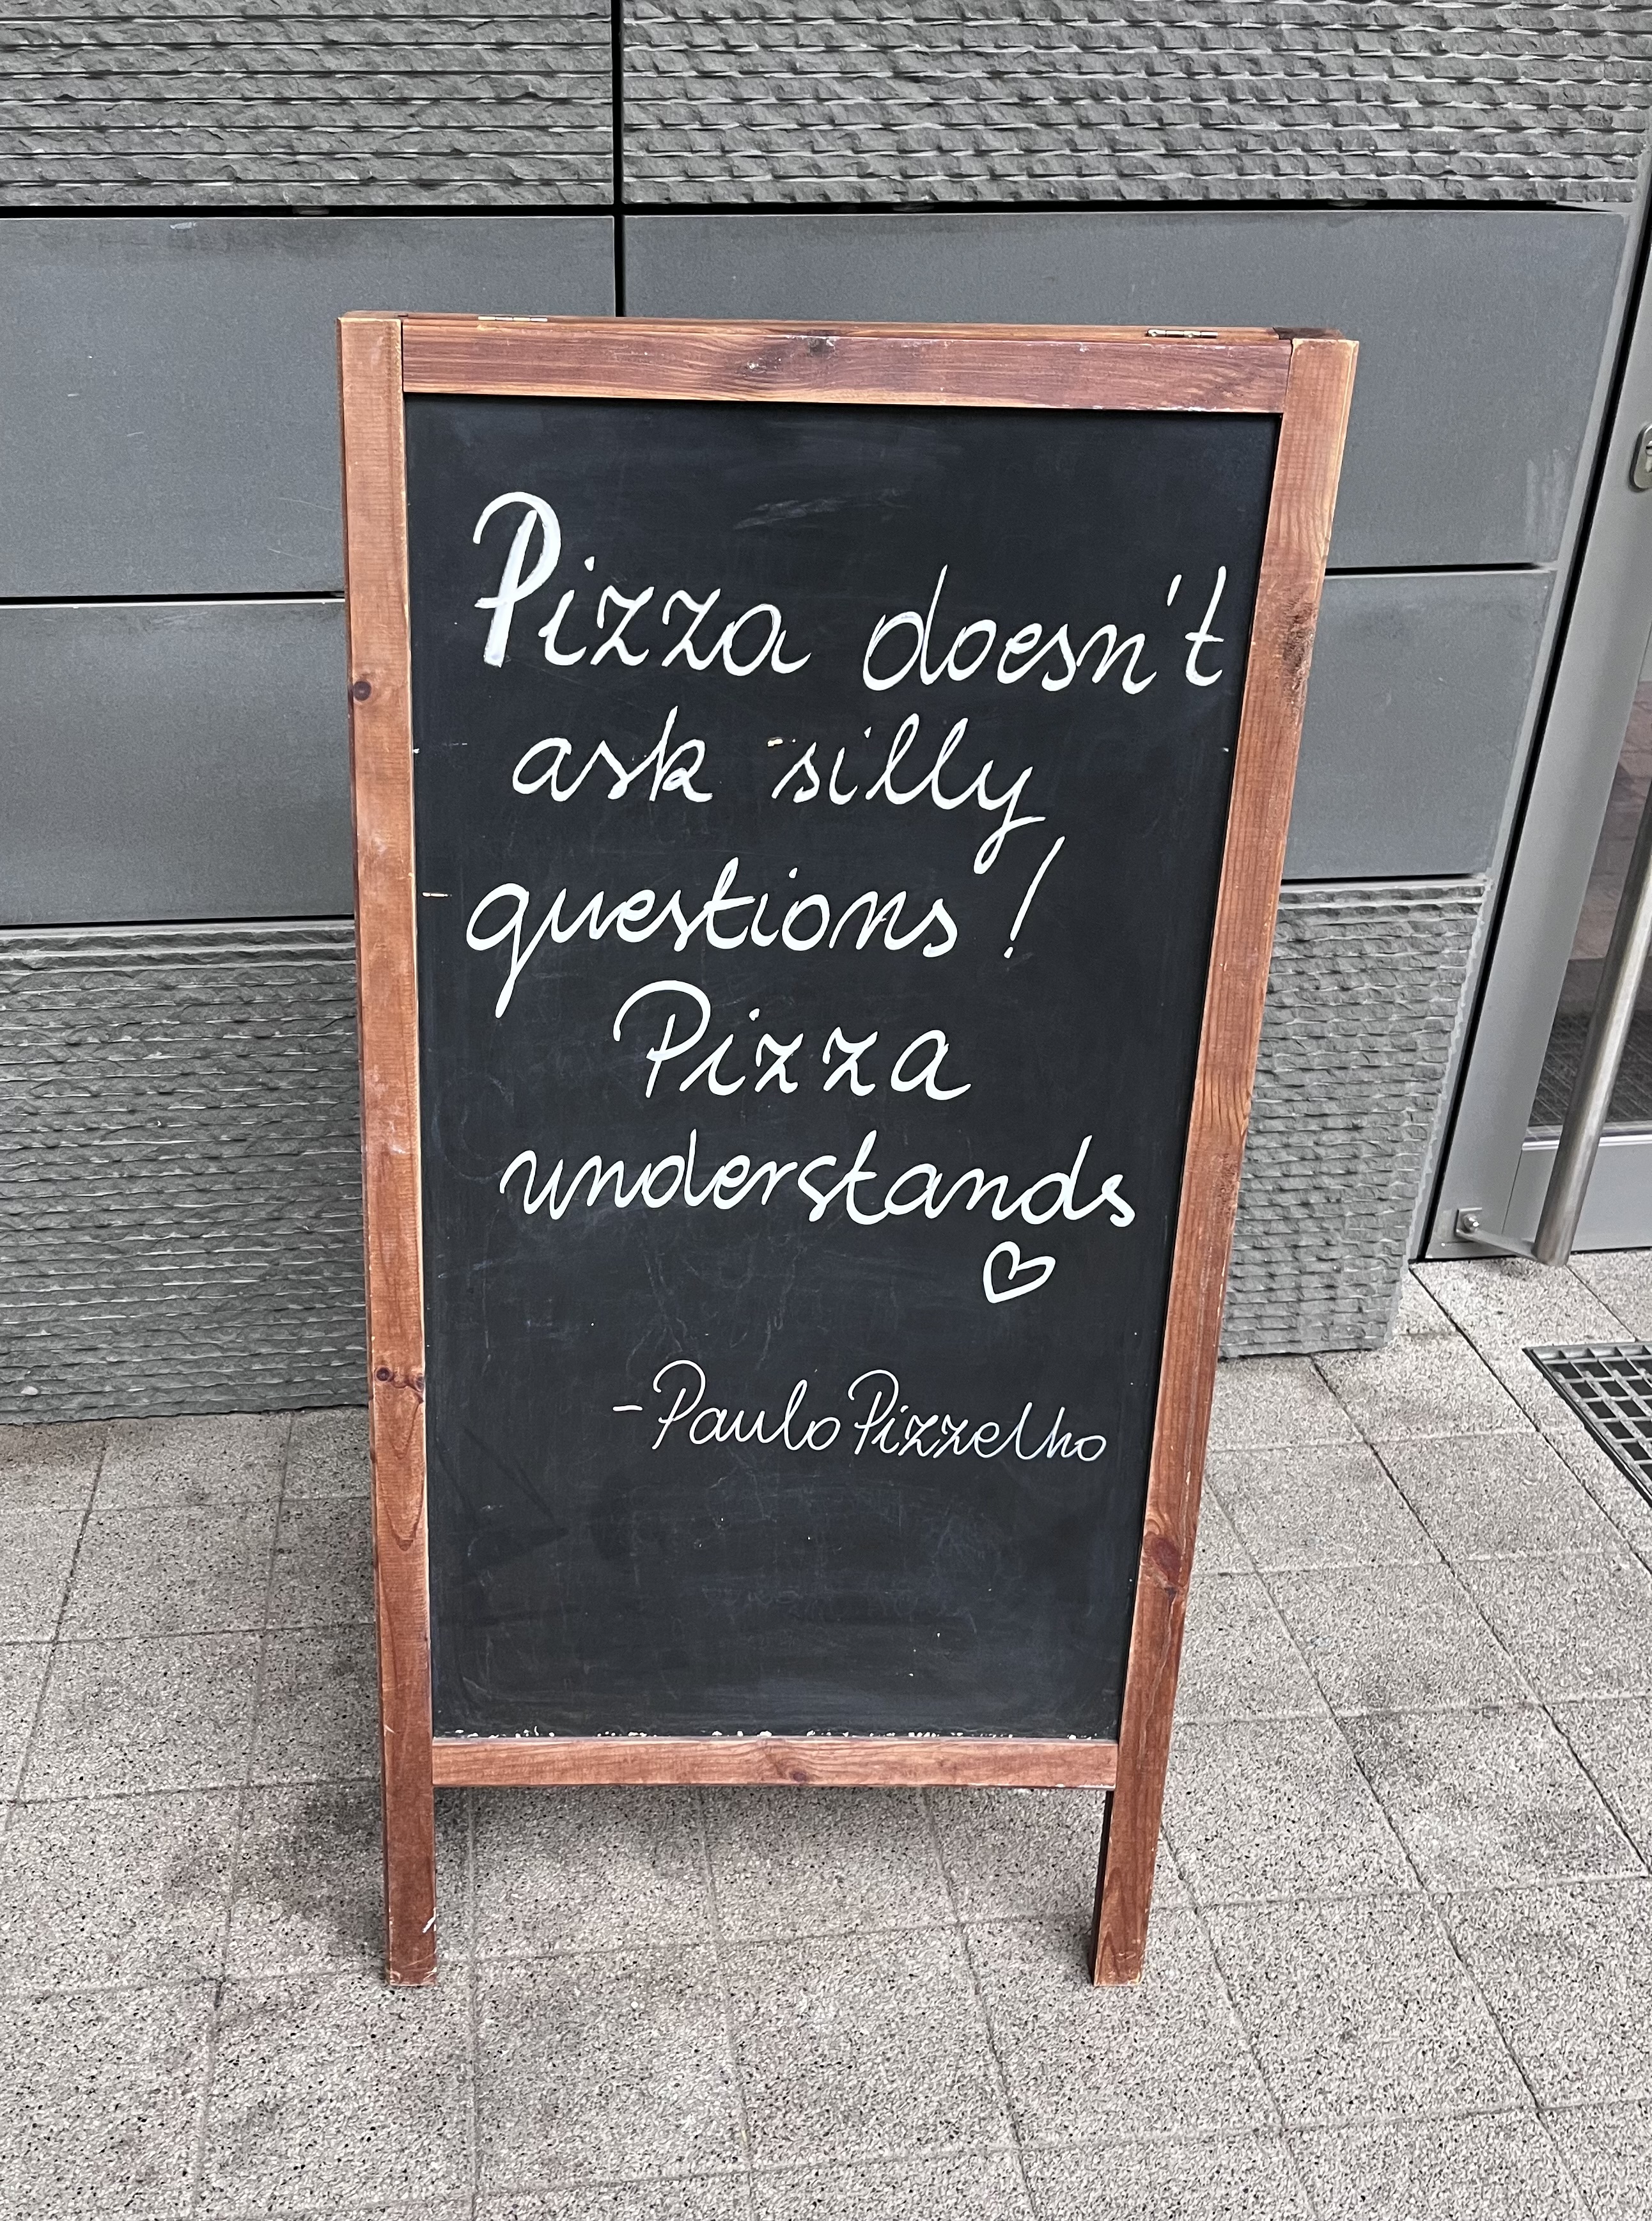 Pizza doesn't
ask silly
questions!
Pizza
understands
♡
-Paulo Pizzelho